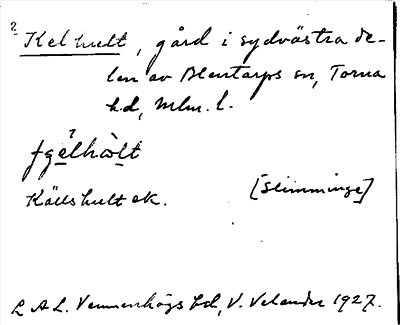 ? Kelhult, gård i sydvästra de-
len av Blentarps sn, Torna
hd, Mlm. l.
Källshult ek. [Slimminge]
L A L. Vemmenhögs hd, V. Velander 1927.